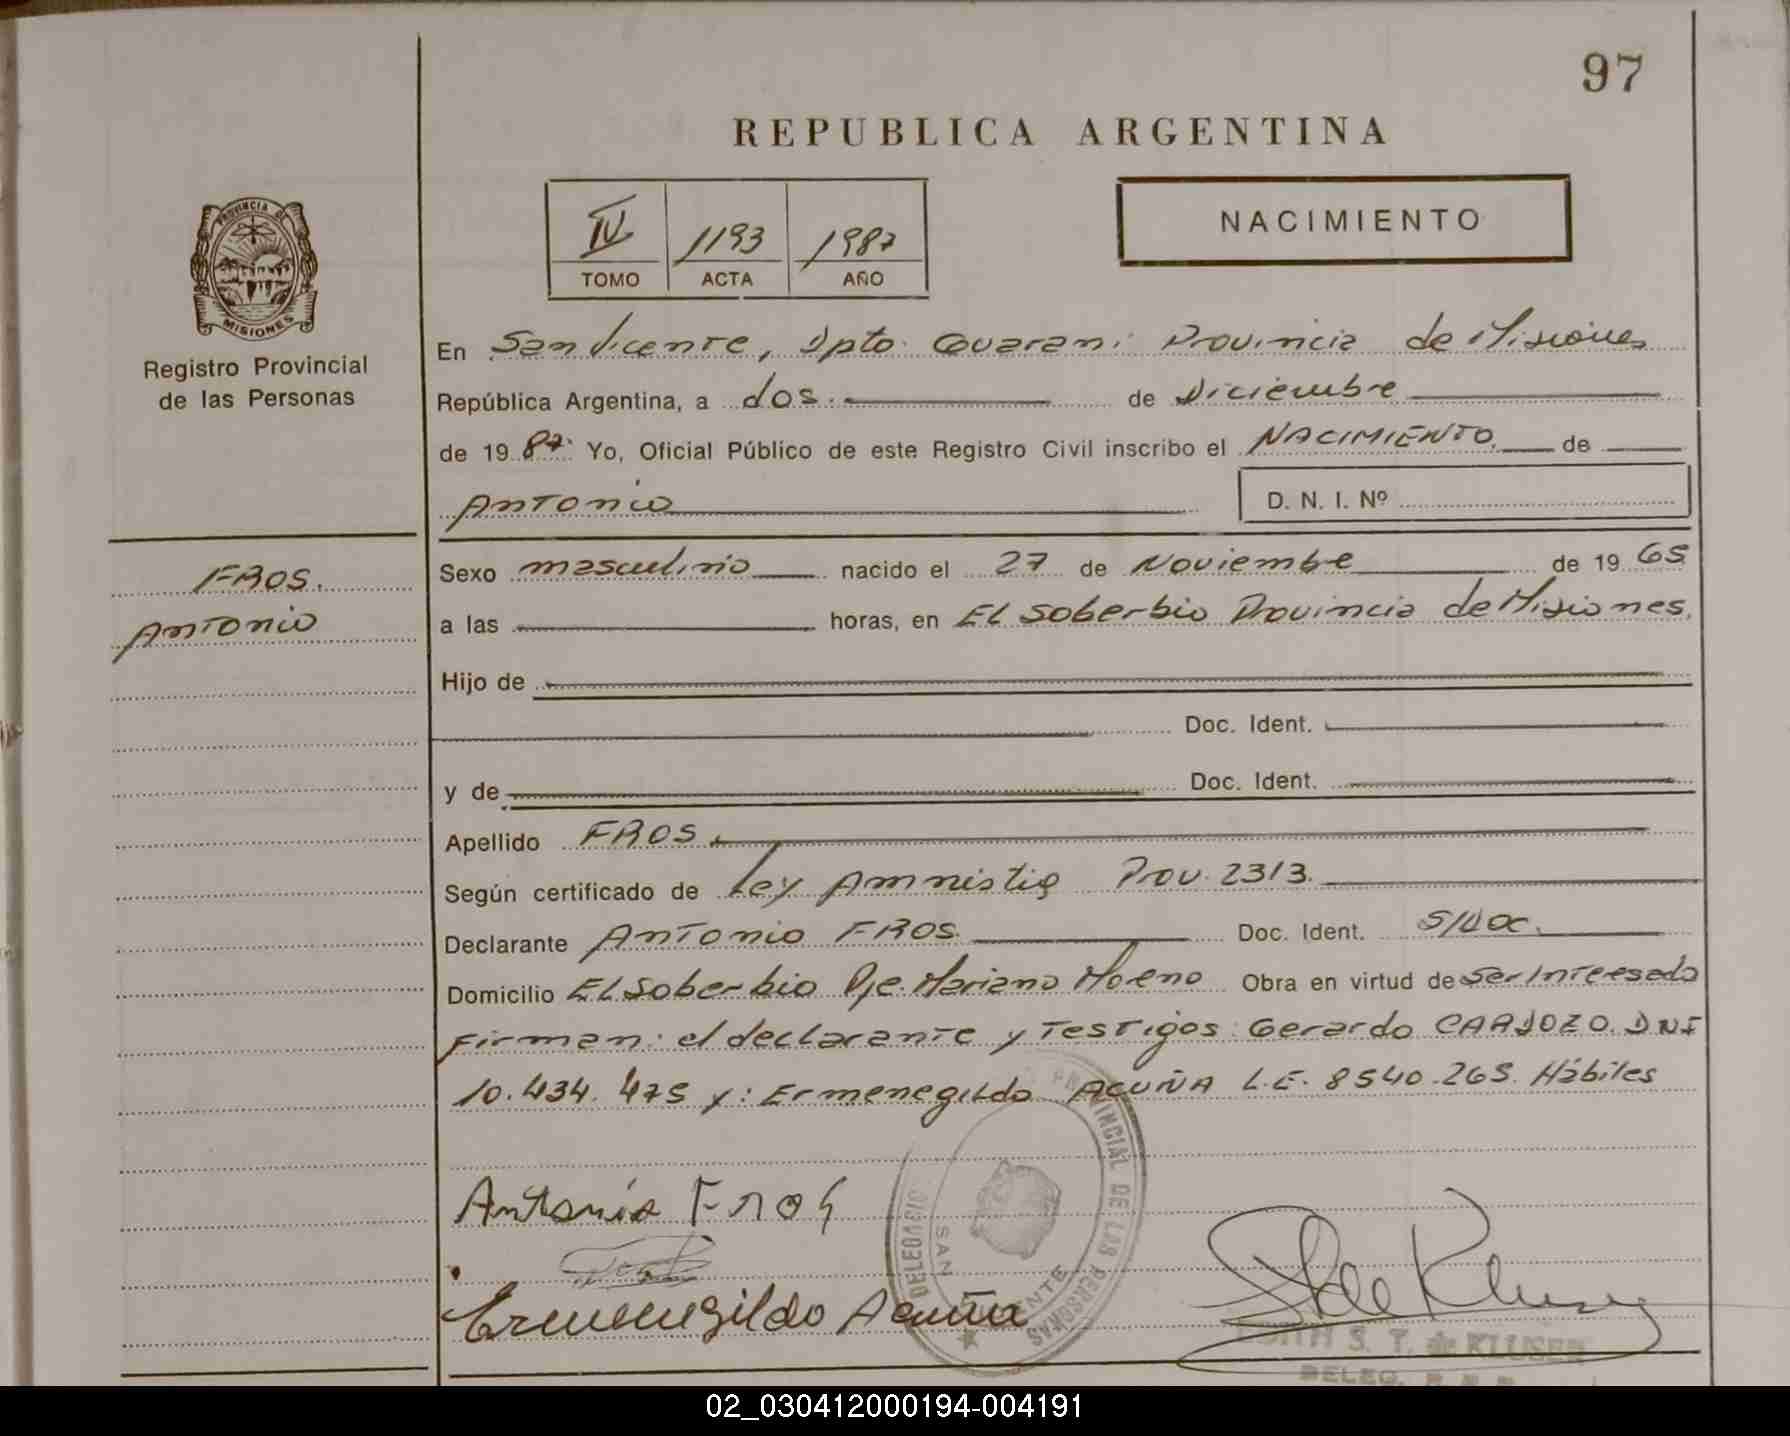 97
REPUBLICA ARGENTINA
IV 1193 1987
TOMO ACTA AÑO
NACIMIENTO
PROVINCIA DE
MISIONES
Registro Provincial
de las Personas
En San Vicente, Dpto. Guarani Provincia de Misiones
República Argentina, a dos. de Diciembre
de 19 87. Yo, Oficial Público de este Registro Civil inscribo el NACIMIENTO. de
Antonio D. N. I. Nº
FROS.
Antonio
Sexo masculino nacido el 27 de Noviembre de 19 65
a las horas, en El Soberbio Provincia de Misiones.
Hijo de
Doc. Ident.
y de Doc. Ident.
Apellido FROS.
Según certificado de Ley Amnistia Prov. 2313.
Declarante Antonio FROS. Doc. Ident. S/Doc.
Domicilio El Soberbio Pje. Mariano Moreno Obra en virtud de ser Interesado
Firman: el declarante y Testigos: Gerardo CARDOZO. DNI
10.434.475 y: Ermenegildo ACUÑA L.E. 8540.265. Hábiles
Antonio Fros
Ermenegildo Acuña
DELEGACIO PROVINCIAL DE LAS PERSONAS
SAN VICENTE
S. T. de KLUSER
DELEG.
02_030412000194-004191